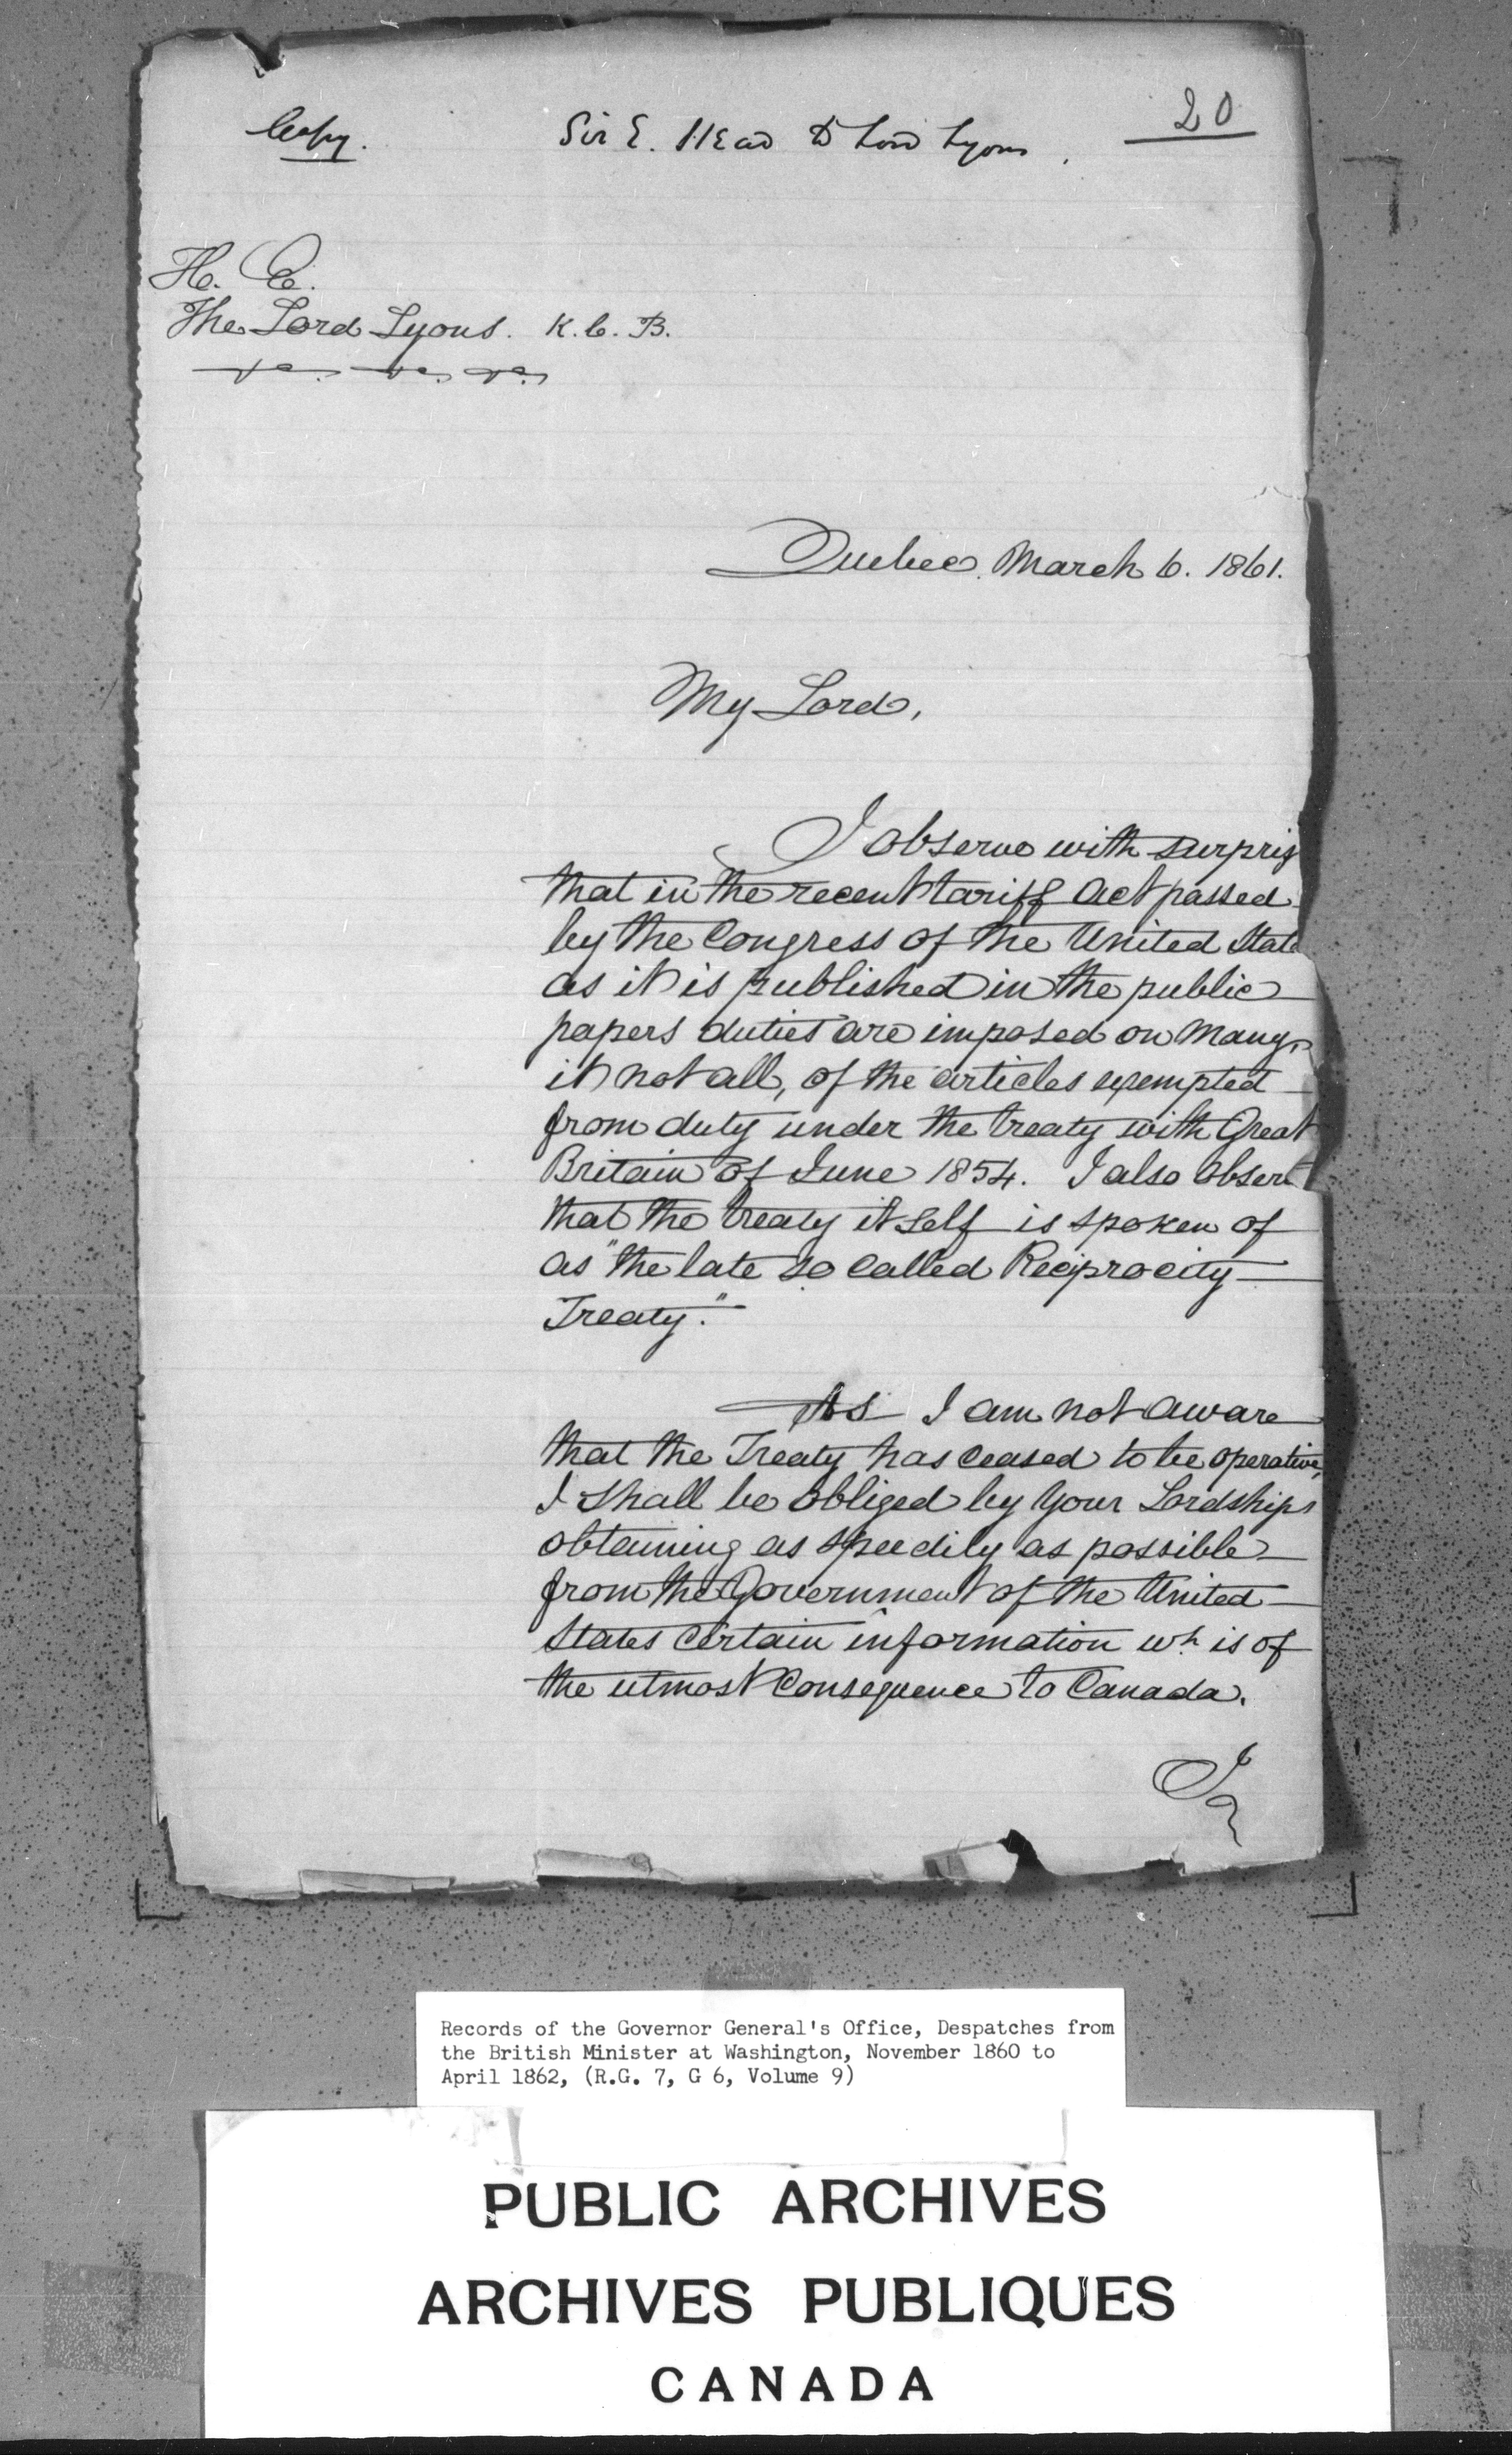 Copy. Sir E. Head to Lord Lyons. 20
H. E.
The Lord Lyons. K. C. B.
&c. &c. &c.
Quebec. March 6. 1861.
My Lord,
I observe with surpris
that in the recent tariff act passed
by the Congress of the United State
as it is published in the public
papers duties are imposed on many,
if not all, of the articles exempted
from duty under the treaty with Great
Britain of June 1854. I also observe
that the treaty itself is spoken of
as "the late so called Reciprocity
Treaty."
As I am not aware
that the Treaty has ceased to be operative,
I shall be obliged by Your Lordships
obtaining as speedily as possible
from the Government of the United
States certain information wh is of
the utmost consequence to Canada.
Records of the Governor General's Office, Despatches from
the British Minister at Washington, November 1860 to
April 1862, (R.G. 7, G 6, Volume 9)
PUBLIC ARCHIVES
ARCHIVES PUBLIQUES
CANADA